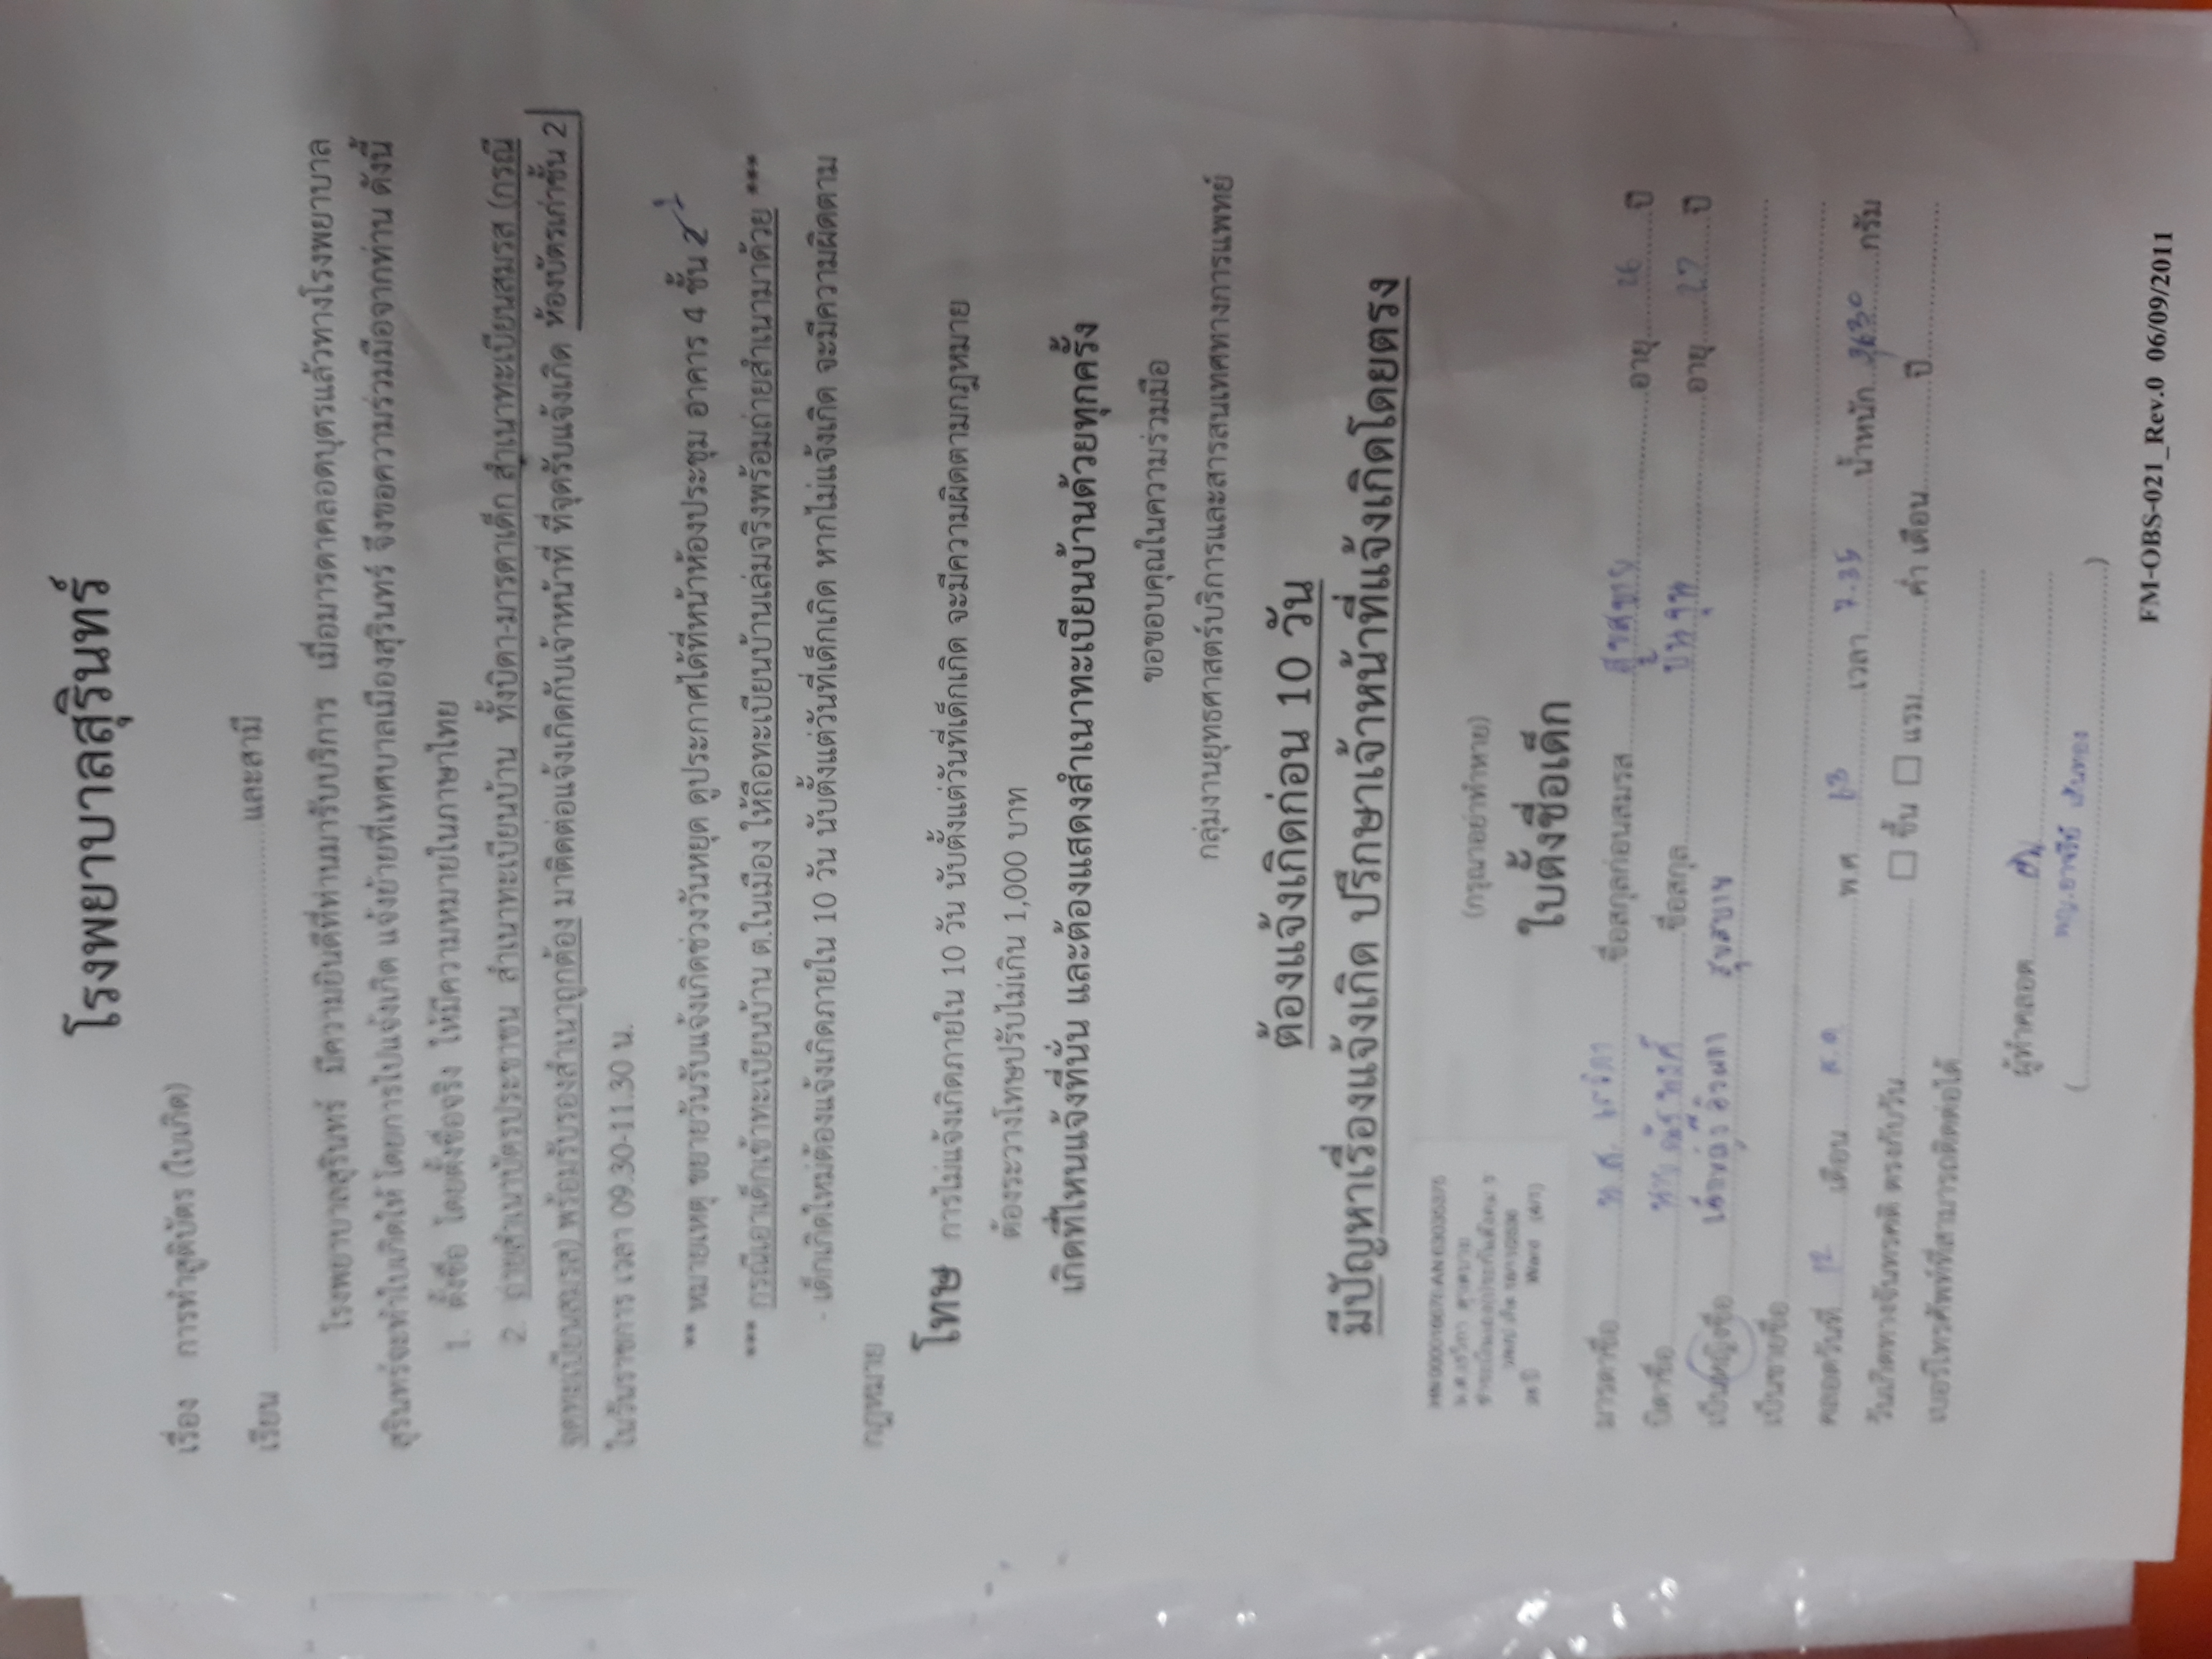 โรงพยาบาลสุรินทร์
เรื่อง การทำสูติบัตร (ใบเกิด)
เรียน ........ และสามี
โรงพยาบาลสุรินทร์ มีความยินดีที่ท่านมารับบริการ เมื่อมารดาคลอดบุตรแล้วทางโรงพยาบาล
สุรินทร์จะทำใบเกิดให้ โดยการไปแจ้งเกิด แจ้งย้ายที่เทศบาลเมืองสุรินทร์ จึงขอความร่วมมือจากท่าน ดังนี้
1. ตั้งชื่อ โดยตั้งชื่อจริง ให้มีความหมายในภาษาไทย
2. ถ่ายสำเนาบัตรประชาชน สำเนาทะเบียนบ้าน ทั้งบิดา-มารดาเด็ก สำเนาทะเบียนสมรส (กรณี
จดทะเบียนสมรส) พร้อมรับรองสำเนาถูกต้อง มาติดต่อแจ้งเกิดกับเจ้าหน้าที่ ที่จุดรับแจ้งเกิด ห้องบัตรเก่าชั้น 2
ในวันราชการ เวลา 09.30-11.30 น.
** หมายเหตุ ขยายวันรับแจ้งเกิดช่วงวันหยุด ดูประกาศได้ที่หน้าห้องประชุม อาคาร 4 ชั้น
*** กรณีเอาเด็กเข้าทะเบียนบ้าน ต.ในเมือง ให้ถือทะเบียนบ้านเล่มจริงพร้อมถ่ายสำเนามาด้วย ***
- เด็กเกิดใหม่ต้องแจ้งเกิดภายใน 10 วัน นับตั้งแต่วันที่เด็กเกิด หากไม่แจ้งเกิด จะมีความผิดตาม
กฎหมาย
โทษ การไม่แจ้งเกิดภายใน 10 วัน นับตั้งแต่วันที่เด็กเกิด จะมีความผิดตามกฎหมาย
ต้องระวางโทษปรับไม่เกิน 1,000 บาท
เกิดที่ไหนแจ้งที่นั่น และต้องแสดงสำเนาทะเบียนบ้านด้วยทุกครั้ง
ขอขอบคุณในความร่วมมือ
กลุ่มงานยุทธศาสตร์บริการและสารสนเทศทางการแพทย์
ต้องแจ้งเกิดก่อน 10 วัน
มีปัญหาเรื่องแจ้งเกิด ปรึกษาเจ้าหน้าที่แจ้งเกิดโดยตรง
AN 63035375
Ward (4/1)
(กรุณาอย่าทำหาย)
ใบตั้งชื่อเด็ก
มารดาชื่อ น.ส. ชื่อสกุลก่อนสมรส สุขสบาย อายุ 26 ปี
บิดาชื่อ นาย ชื่อสกุล อายุ 27 ปี
เป็นหญิงชื่อ เด็กหญิง สุขสบาย
เป็นชายชื่อ
คลอดวันที่ 12 เดือน ส.ค พ.ศ 63 เวลา 7.35 น้ำหนัก 3630 กรัม
วันเกิดทางจันทรคติ ตรงกับวัน ☐ ขึ้น ☐ แรม ค่ำ เดือน ปี
เบอร์โทรศัพท์ที่สามารถติดต่อได้
ผู้ทำคลอด
(พญ.อาจรีย์ )
FM-OBS-021_Rev.0 06/09/2011